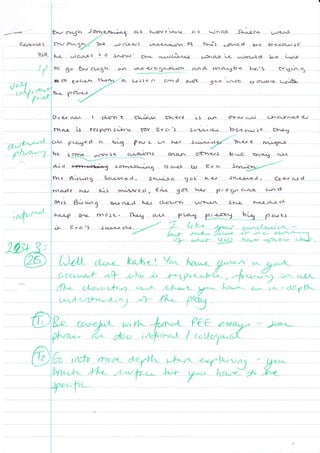 through something as horrible as what Sheila went
through. The writers intention of this could be because
he wants to show the audience what it would be like
to go through an interrogation and maybe he's trying
to teach them a lesson and not get into trouble with
the police.
Overall I don't think there is an overall character
that is responsible for Eva's suicide because they
all played a big part in her suicide. There might
be some worse actions than others but they all
did something bad to Eva Smith.
Mr Birling sacked, Sheila got her sacked, Gerald
made her his mistress, Eric got her pregnant and
Mrs Birling turned her down when she needed
help the most. They all play pretty big parts
in Eva's suicide.
very important point
Sp
awkward phrasing
informal
I like your conclusion -
but make sure it is a summary
of what YOU have spoken about.
3:
25
Well done Katie! You have given a good
account of who is responsible, focusing on all
the characters and show you have an in-depth
understanding of the play.
T1 Be careful with formal PEE essays - some
phrases are too informal / colloquial
T2 Go into more depth when explaining - you
touch the surface but you have to be
specific.